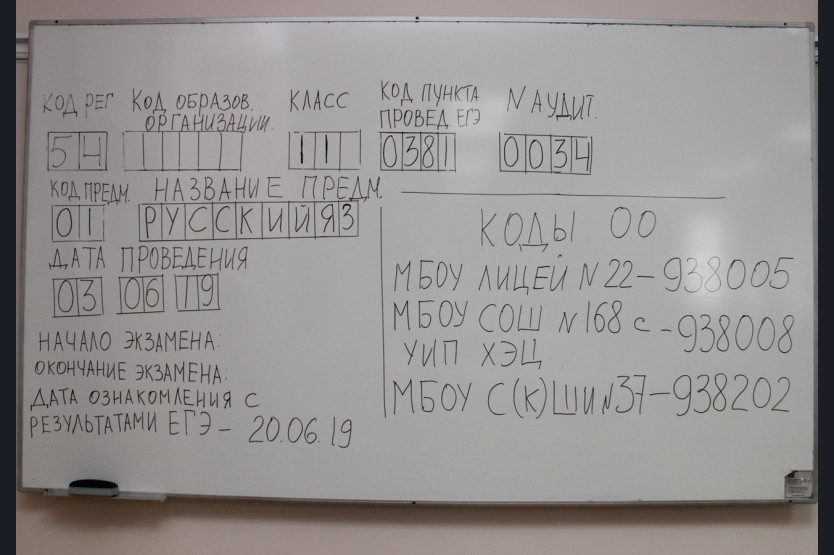 КОД РЕГ
54
КОД ОБРАЗОВ.
ОРГАНИЗАЦИИ.
КЛАСС
11
КОД ПУНКТА
ПРОВЕД. ЕГЭ
0381
N АУДИТ.
0034
КОД ПРЕДМ.
01
НАЗВАНИЕ ПРЕДМ.
РУССКИЙЯЗ
ДАТА ПРОВЕДЕНИЯ
03 06 19
НАЧАЛО ЭКЗАМЕНА:
ОКОНЧАНИЕ ЭКЗАМЕНА:
ДАТА ОЗНАКОМЛЕНИЯ С
РЕЗУЛЬТАТАМИ ЕГЭ – 20.06.19
КОДЫ О.О
МБОУ ЛИЦЕЙ N 22 – 938005
МБОУ СОШ N 168 с – 938008
УИП ХЭЦ
МБОУ С(К)ШИ N 37 – 938202